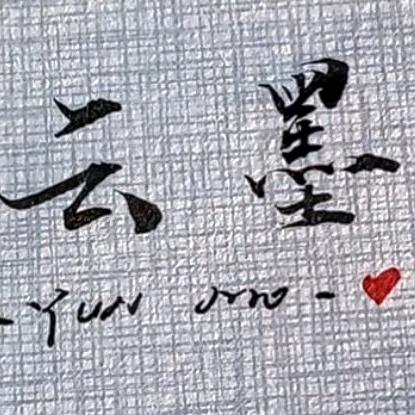 云墨
- YUN mo - ❤